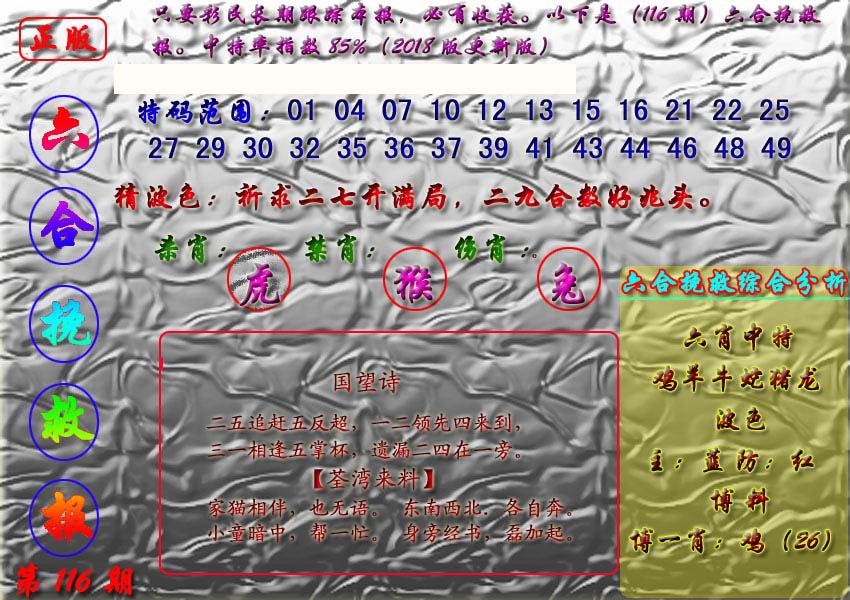 正版
只要彩民长期跟踪本报，必有收获。以下是（116期）六合挽救
报。中特率指数85%（2018版更新版）
六合挽救报
第116期
特码范围：01 04 07 10 12 13 15 16 21 22 25
27 29 30 32 35 36 37 39 41 43 44 46 48 49
猜波色：祈求二七开满局，二九合数好兆头。
杀肖：虎 禁肖：猴 伤肖：兔
国望诗
二五追赶五反超，一二领先四来到，
三一相逢五掌杯，遗漏二四在一旁。
【荃湾来料】
家猫相伴，也无语。 东南西北．各自奔。
小童暗中，帮一忙。 身旁经书，磊加起。
六合挽救综合分析
六肖中特
鸡羊牛蛇猪龙
波色
主：蓝防：红
博料
博一肖：鸡（26）